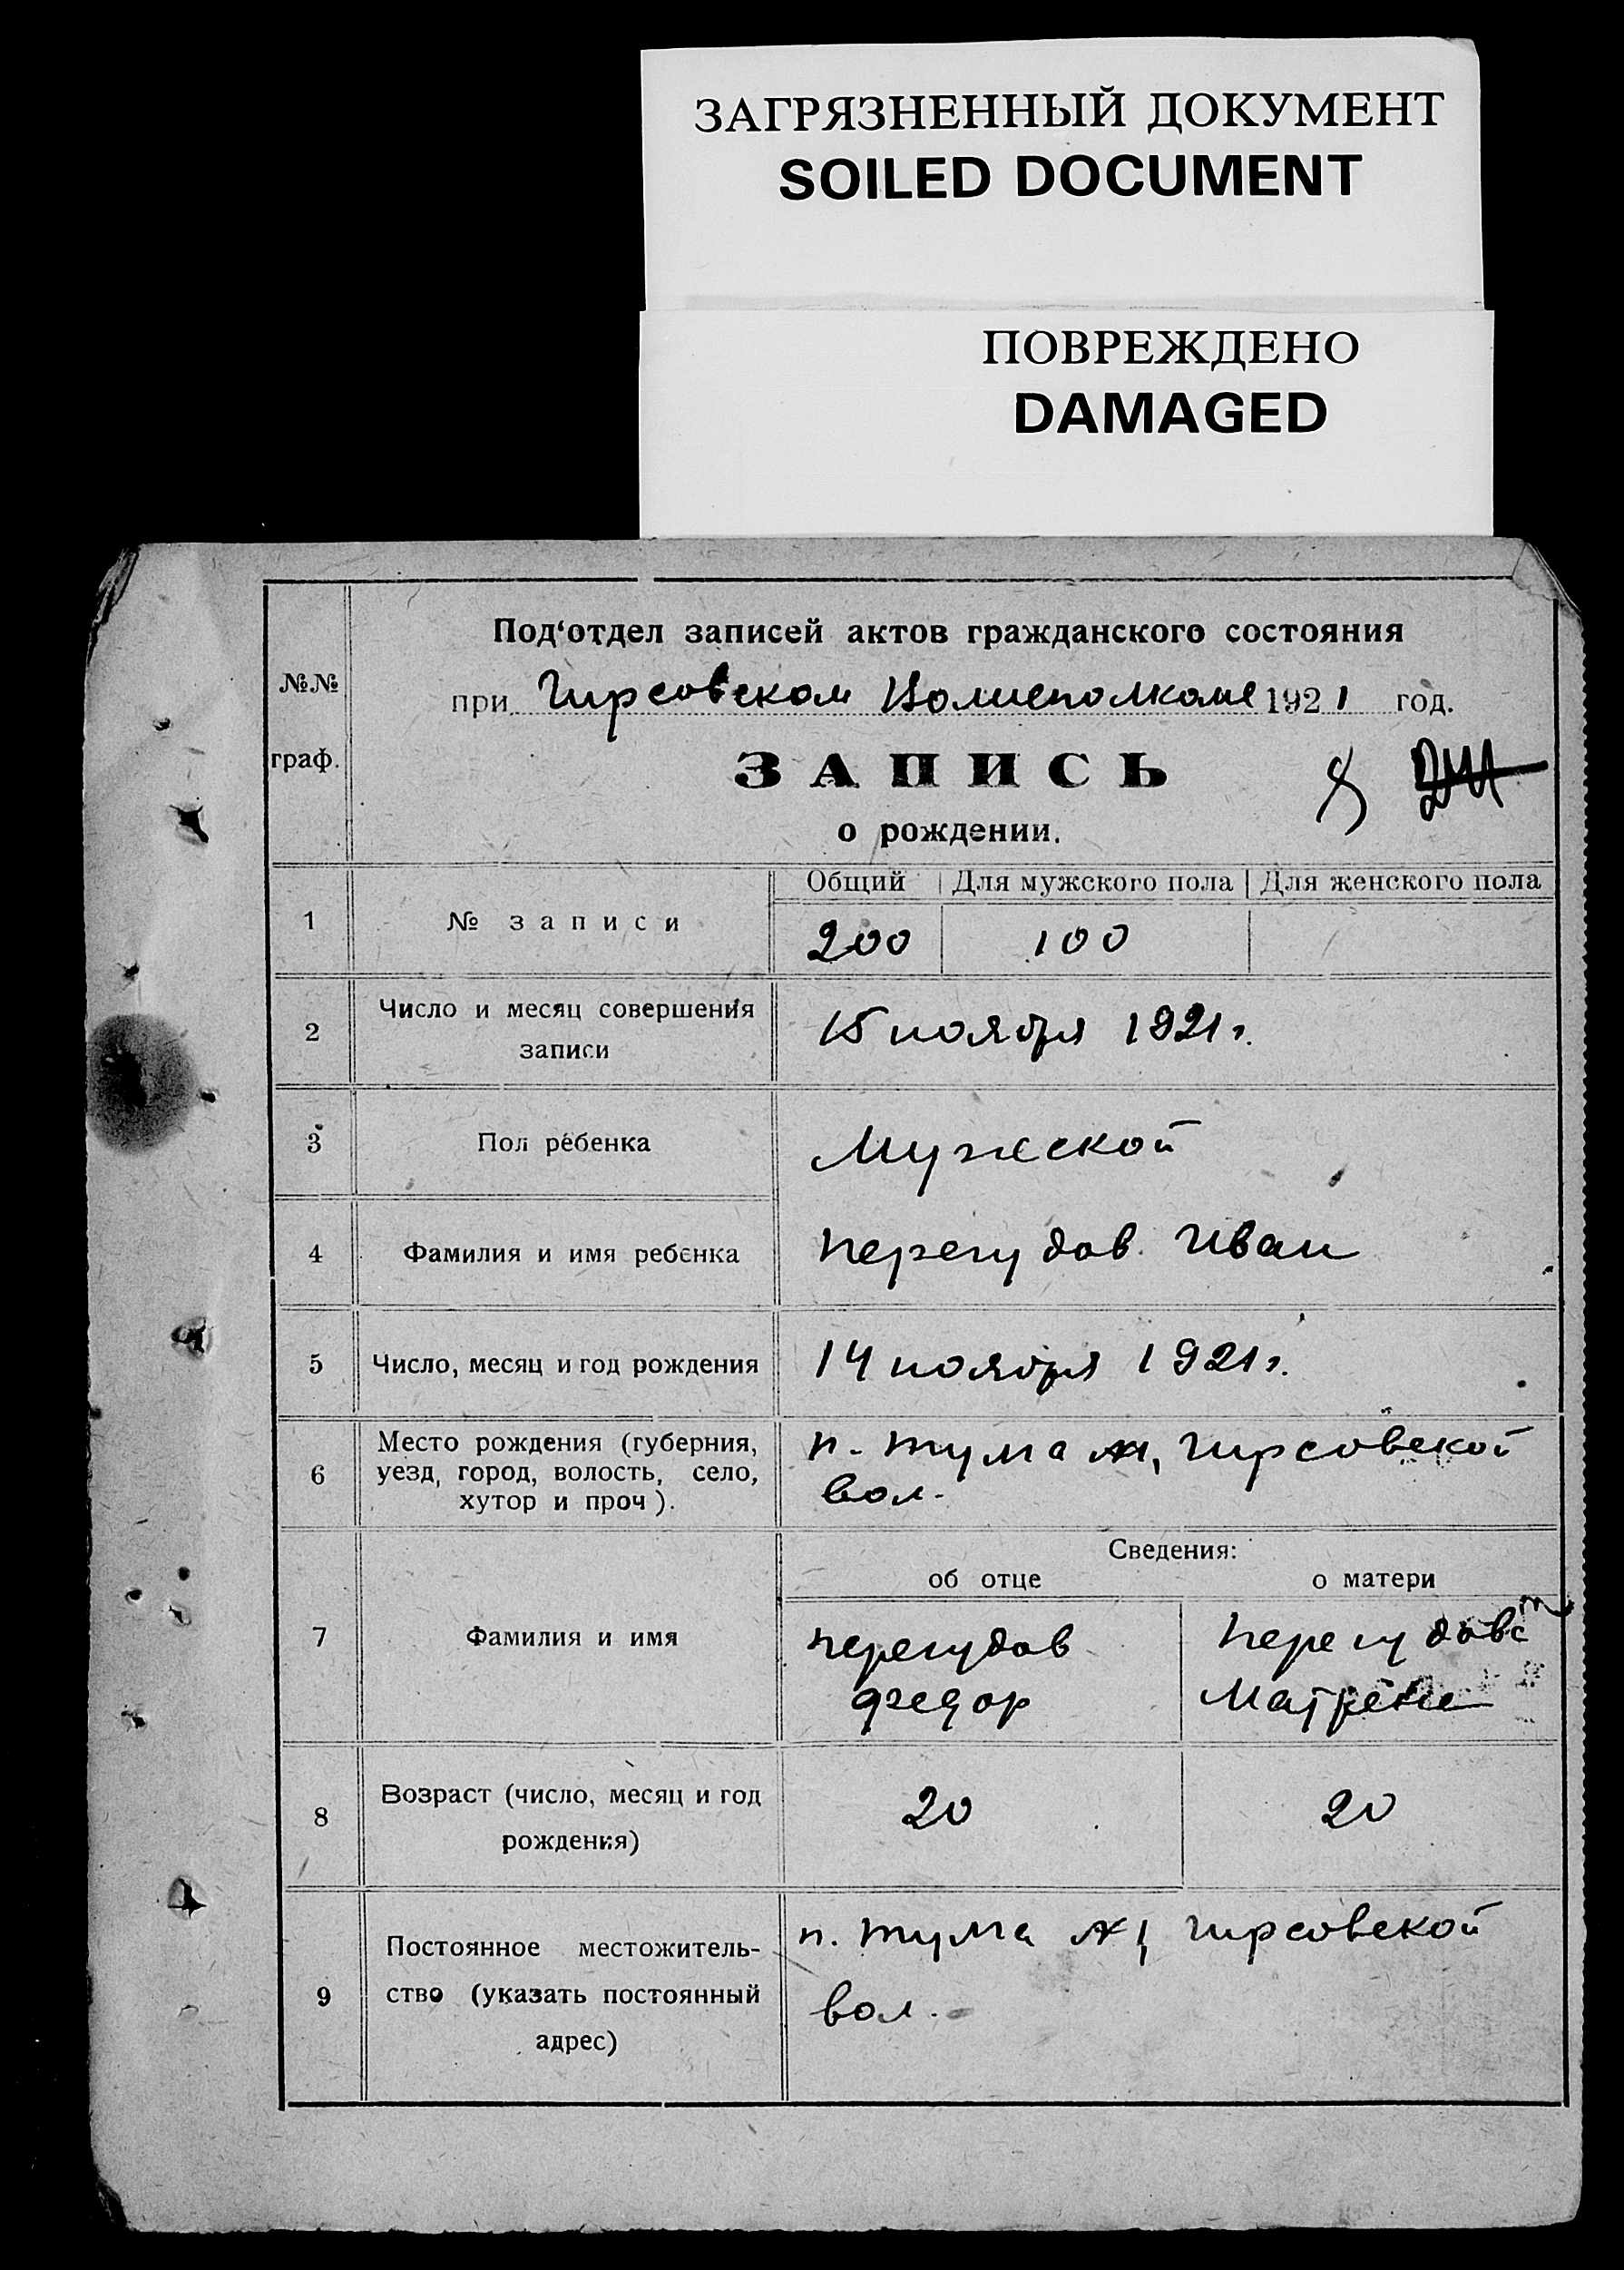 ЗАГРЯЗНЕННЫЙ ДОКУМЕНТ
SOILED DOCUMENT
ПОВРЕЖДЕНО
DAMAGED
№№
граф.
Под‘отдел записей актов гражданского состояния
при Гирсовском Волисполкоме 1921 год.
ЗАПИСЬ
о рождении.
Общий Для мужского пола Для женского пола
1 № записи 200 100
2 Число и месяц совершения
записи
15 ноября 1921 г.
3 Пол ребенка Мужской
4 Фамилия и имя ребенка Перегудов Иван
5 Число, месяц и год рождения 14 ноября 1921 г.
6 Место рождения (губерния,
уезд, город, волость, село,
хутор и проч).
п. Тума №1, Гирсовской
вол.
Сведения:
об отце о матери
7 Фамилия и имя
Перегудов
Федор
Перегудова
Матрена
8 Возраст (число, месяц и год
рождения)
20 20
9 Постоянное местожитель-
ство (указать постоянный
адрес)
п. Тума №1, Гирсовской
вол.